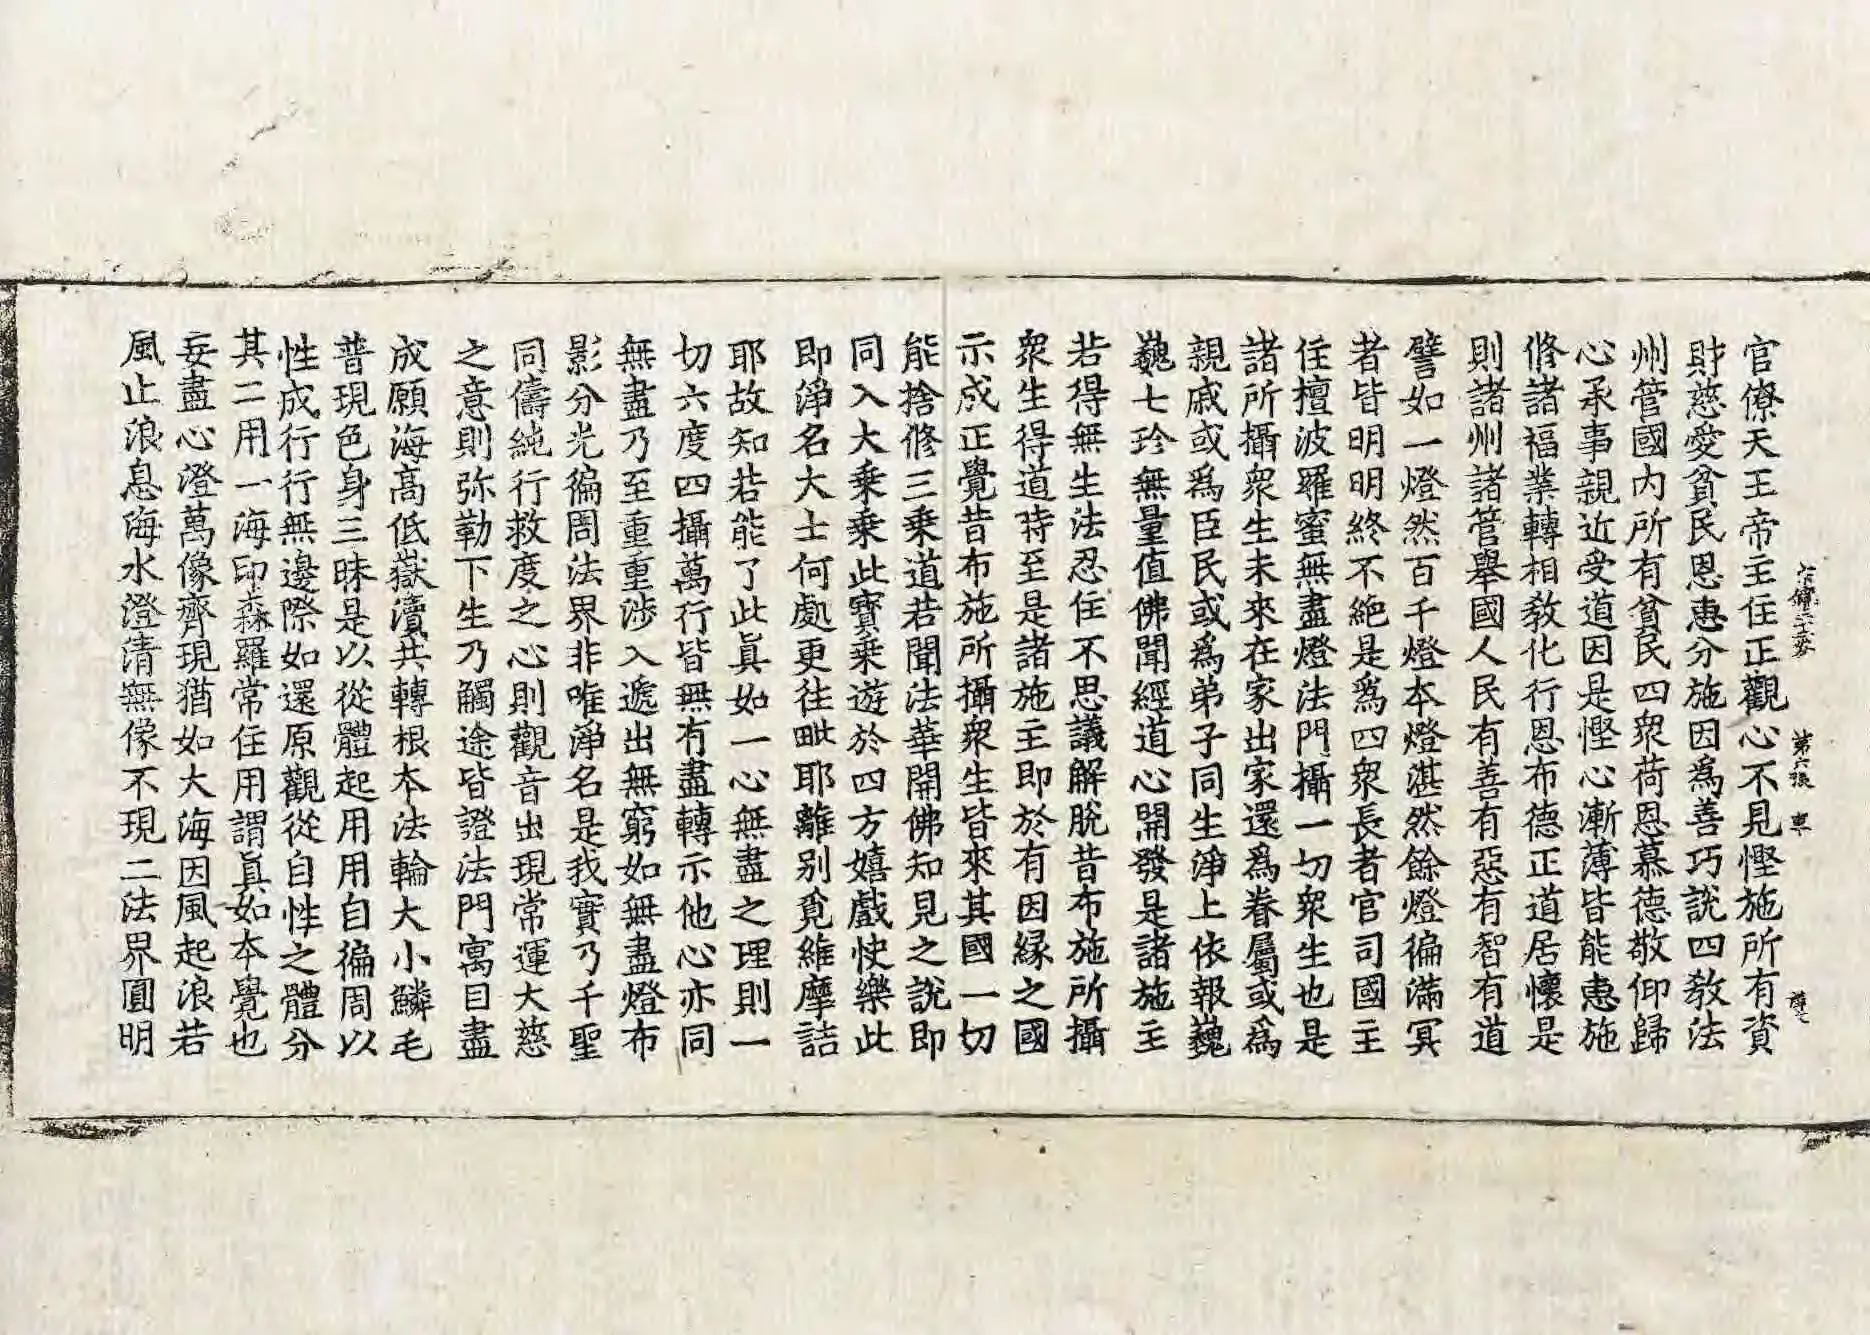 官僚天王帝主住正觀心不見慳施所有資
財慈愛貧民恩惠分施因爲善巧說四教法
州管國內所有貧民四衆荷恩慕德敬仰歸
心承事親近受道因是慳心漸薄皆能惠施
修諸福業轉相教化行恩布德正道居懷是
則諸州諸管舉國人民有善有惡有智有道
譬如一燈然百千燈本燈湛然餘燈徧滿冥
者皆明明終不絶是爲四衆長者官司國主
住檀波羅蜜無盡燈法門攝一切衆生也是
諸所攝衆生未來在家出家還爲眷屬或爲
親戚或爲臣民或爲弟子同生淨土依報巍
巍七珍無量值佛聞經道心開發是諸施主
若得無生法忍住不思議解脫昔布施所攝
衆生得道時至是諸施主即於有因緣之國
示成正覺昔布施所攝衆生皆來其國一切
能捨修三乘道若聞法華開佛知見之說即
同入大乘乘此寶乘遊於四方嬉戲快樂此
即淨名大士何處更往毗耶離別覓維摩詰
耶故知若能了此眞如一心無盡之理則一
切六度四攝萬行皆無有盡轉示他心亦同
無盡乃至重重涉入遞出無窮如無盡燈布
影分光徧周法界非唯淨名是我實乃千聖
同儔純行救度之心則觀音出現常運大慈
之意則弥勒下生乃觸途皆證法門寓目盡
成願海高低嶽瀆共轉根本法輪大小鱗毛
普現色身三昧是以從體起用用自徧周以
性成行行無邊際如還原觀從自性之體分
其二用一海印森羅常住用謂眞如本覺也
妄盡心澄萬像齊現猶如大海因風起浪若
風止浪息海水澄清無像不現二法界圓明
第六張